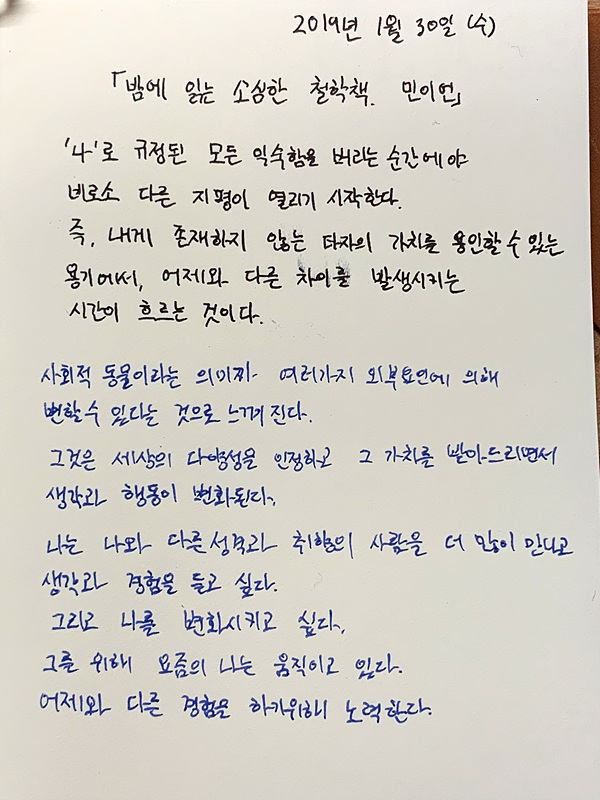 2019년 1월 30일 (수)
「밤에 읽는 소심한 철학책. 민이언」
'나'로 규정된 모든 익숙함을 버리는 순간에야
비로소 다른 지평이 열리기 시작한다.
즉, 내게 존재하지 않는 타자의 가치를 용인할 수 있는
용기에서, 어제와 다른 차이를 발생시키는
시간이 흐르는 것이다.
사회적 동물이라는 의미가 여러가지 외부요인에 의해
변할 수 있다는 것으로 느껴진다.
그것은 세상의 다양성을 인정하고 그 가치를 받아드리면서
생각과 행동이 변화된다.
나는 나와 다른 성격과 취향의 사람을 더 많이 만나고
생각과 경험을 듣고 싶다.
그리고 나를 변화시키고 싶다.
그를 위해 요즘의 나는 움직이고 있다.
어제와 다른 경험을 하기위해 노력한다.